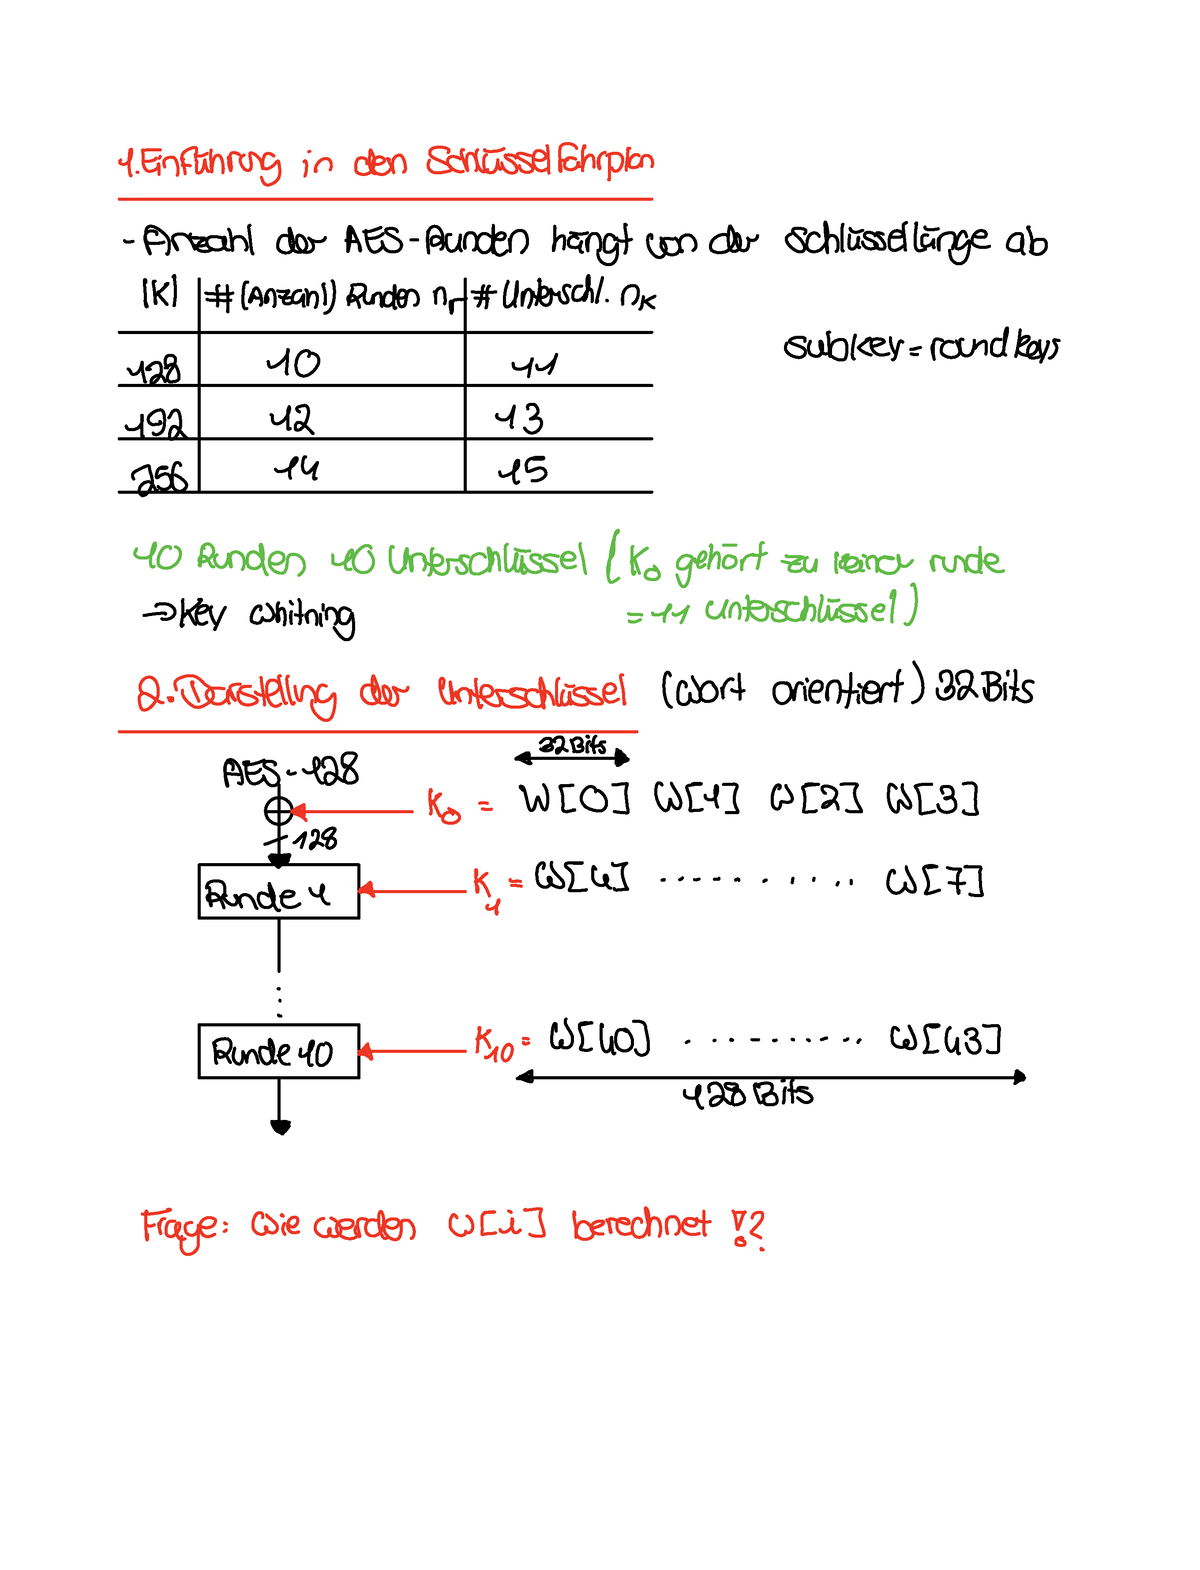 1. Einführung in den Schlüsselfahrplan
- Anzahl der AES-Runden hängt von der Schlüssellänge ab
|K| # (Anzahl) Runden nr # Unterschl. nK
128 10 11
subkey = round keys
192 12 13
256 14 15
10 Runden 10 Unterschlüssel (K0 gehört zu keiner runde
= 11 unterschlüssel)
→ Key whitning
2. Darstellung der Unterschlüssel (wort orientiert) 32 Bits
32 Bits
AES-128
K0 = W[0] W[1] W[2] W[3]
128
Runde 1 K1 = W[4] .......... W[7]
Runde 10 K10 = W[40] .......... W[43]
128 Bits
Frage: Wie werden W[i] berechnet !?